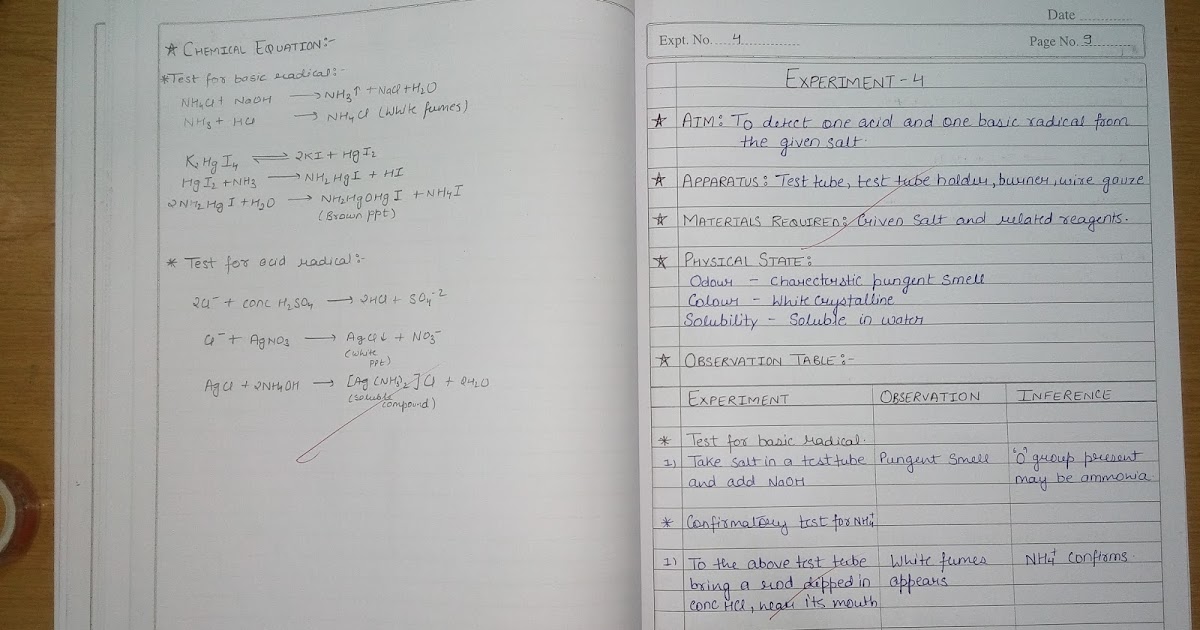 ★ CHEMICAL EQUATION:-
* Test for basic radical:-
NH₄Cl + NaOH ⟶ NH₃↑ + NaCl + H₂O
NH₃ + HCl ⟶ NH₄Cl (White fumes)
K₂HgI₄ ⇌ 2KI + HgI₂
HgI₂ + NH₃ ⟶ NH₂HgI + HI
2NH₂HgI + H₂O ⟶ NH₂HgOHgI + NH₄I
(Brown ppt)
* Test for acid radical:-
2Cl⁻ + conc H₂SO₄ ⟶ 2HCl + SO₄⁻²
Cl⁻ + AgNO₃ ⟶ AgCl↓ + NO₃⁻
(White
ppt)
AgCl + 2NH₄OH ⟶ [Ag(NH₃)₂]Cl + 2H₂O
(soluble
compound)
Date
Expt. No. 4
Page No. 9
EXPERIMENT - 4
★ AIM: To detect one acid and one basic radical from
the given salt.
★ APPARATUS: Test tube, test tube holder, burner, wire gauze
★ MATERIALS REQUIRED: Given salt and related reagents.
★ PHYSICAL STATE:
Odour - Charecterstic pungent smell
Colour - White crystalline
Solubility - Soluble in water
★ OBSERVATION TABLE:-
EXPERIMENT OBSERVATION INFERENCE
* Test for basic radical.
1) Take salt in a test tube Pungent smell 'O' group present
and add NaOH may be ammonia.
* Confirmatory test for NH₄⁺
1) To the above test tube White fumes NH₄⁺ confirms.
bring a rod dipped in appears
conc HCl, near its mouth